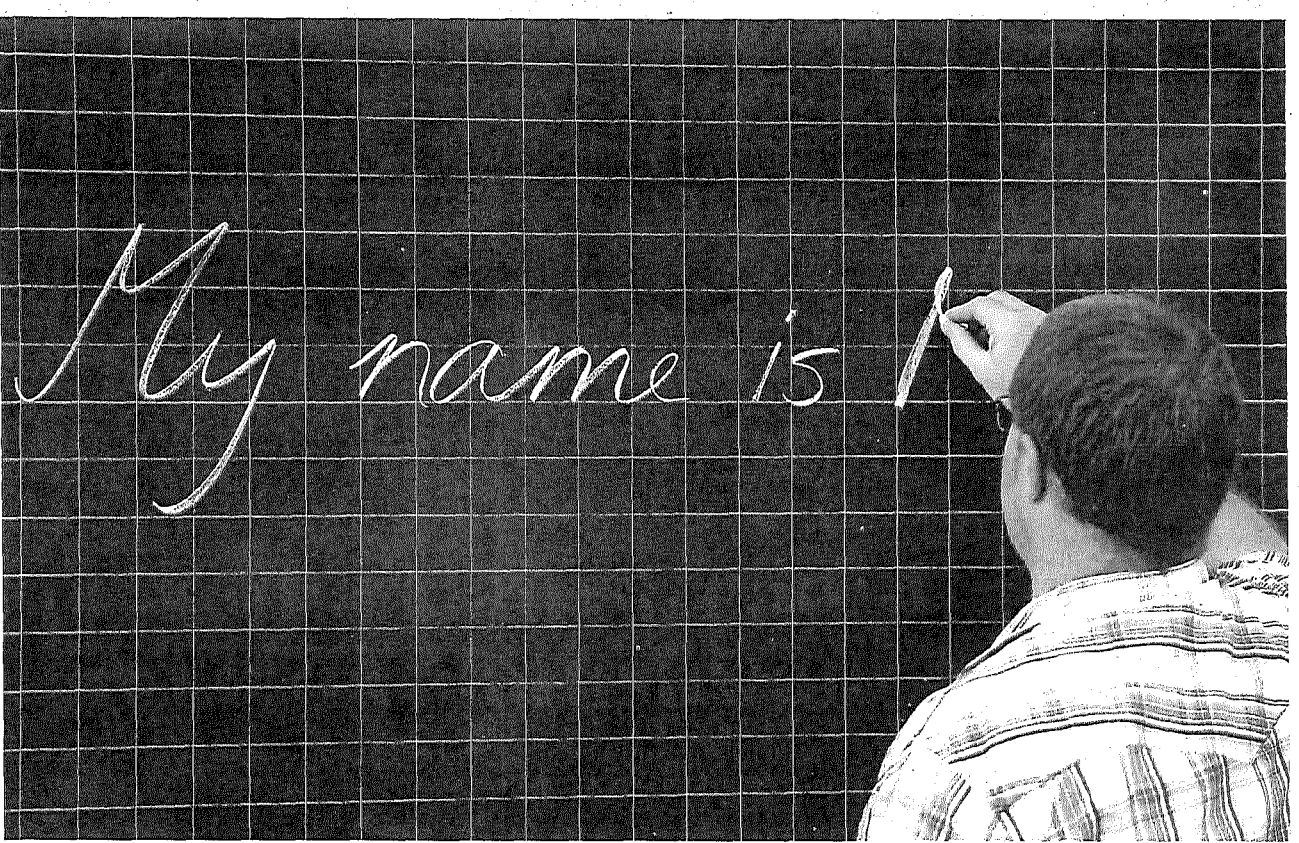 My name is